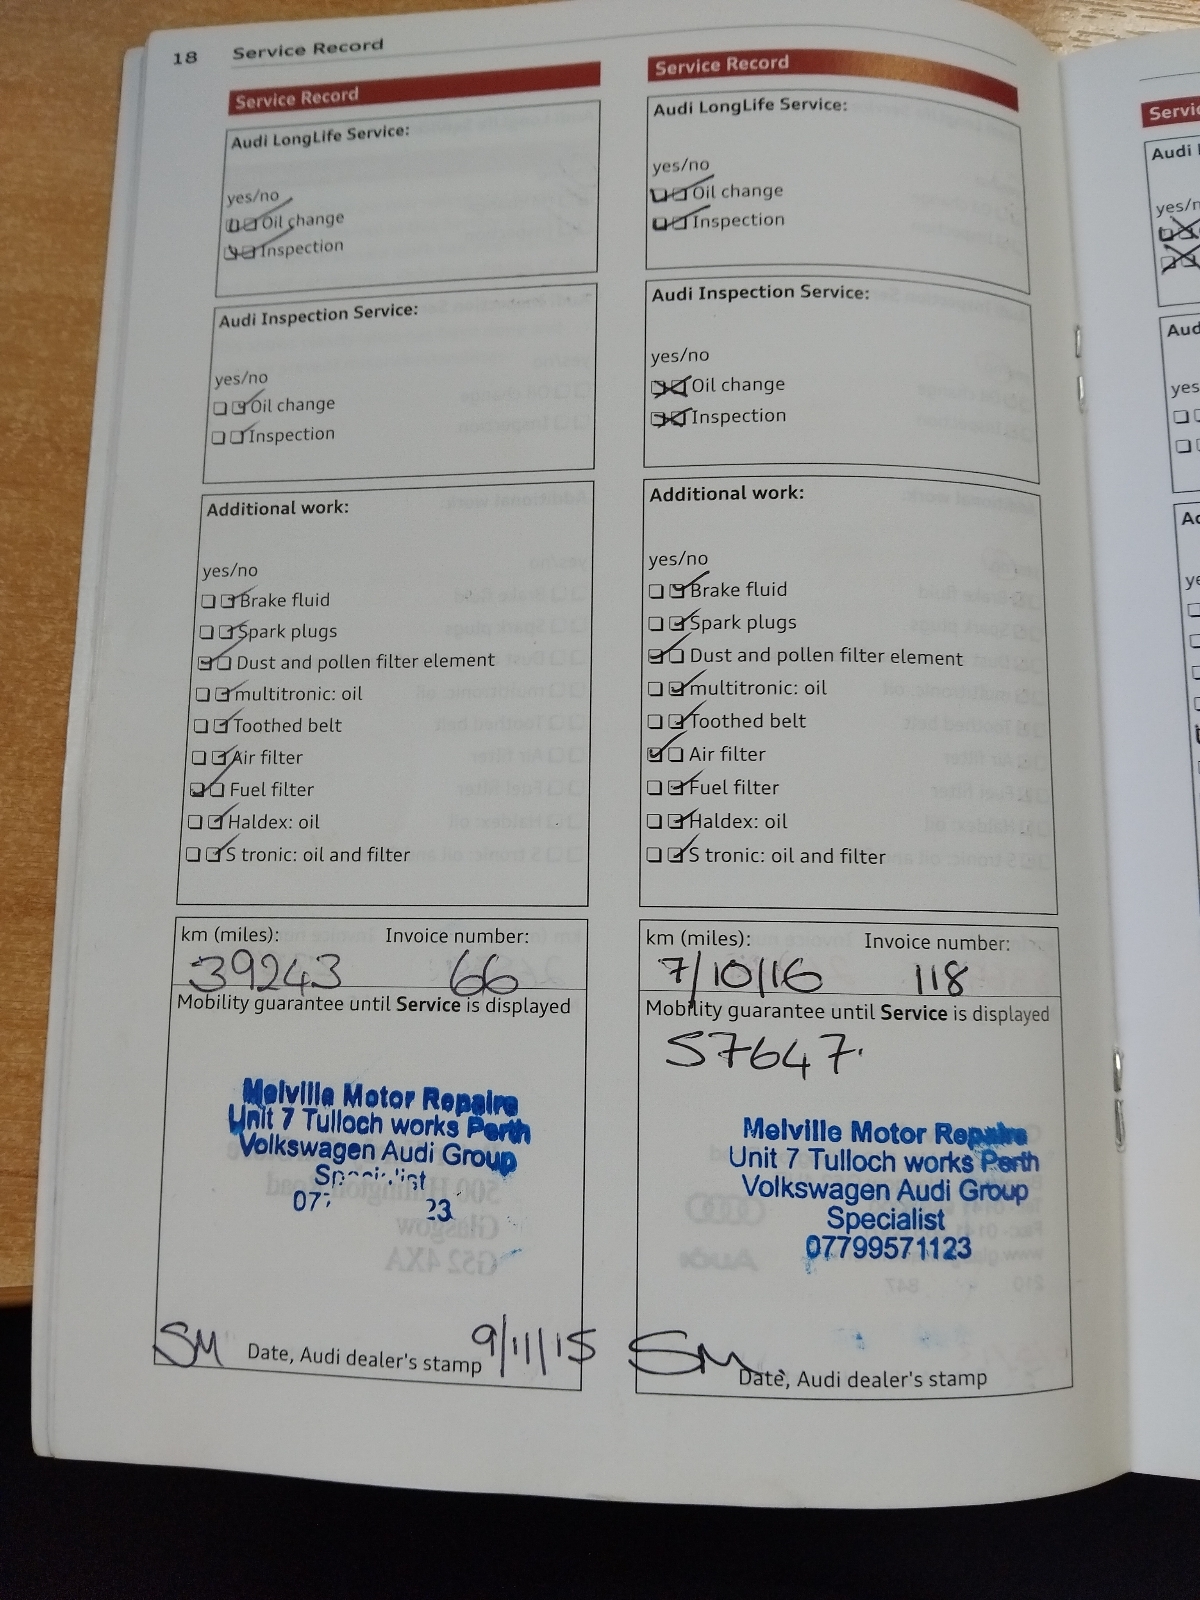 18 Service Record
Service Record
Audi LongLife Service:
yes/no
Oil change
Inspection
Audi Inspection Service:
yes/no
Oil change
Inspection
Additional work:
yes/no
Brake fluid
Spark plugs
Dust and pollen filter element
multitronic: oil
Toothed belt
Air filter
Fuel filter
Haldex: oil
S tronic: oil and filter
km (miles): Invoice number:
39243 66
Mobility guarantee until Service is displayed
Melville Motor Repairs
Unit 7 Tulloch works Perth
Volkswagen Audi Group
Specialist
07 23
SM Date, Audi dealer's stamp 9/11/15
Service Record
Audi LongLife Service:
yes/no
Oil change
Inspection
Audi Inspection Service:
yes/no
Oil change
Inspection
Additional work:
yes/no
Brake fluid
Spark plugs
Dust and pollen filter element
multitronic: oil
Toothed belt
Air filter
Fuel filter
Haldex: oil
S tronic: oil and filter
km (miles): Invoice number:
7/10/16 118
Mobility guarantee until Service is displayed
57647.
Melville Motor Repairs
Unit 7 Tulloch works Perth
Volkswagen Audi Group
Specialist
07799571123
SM Date, Audi dealer's stamp